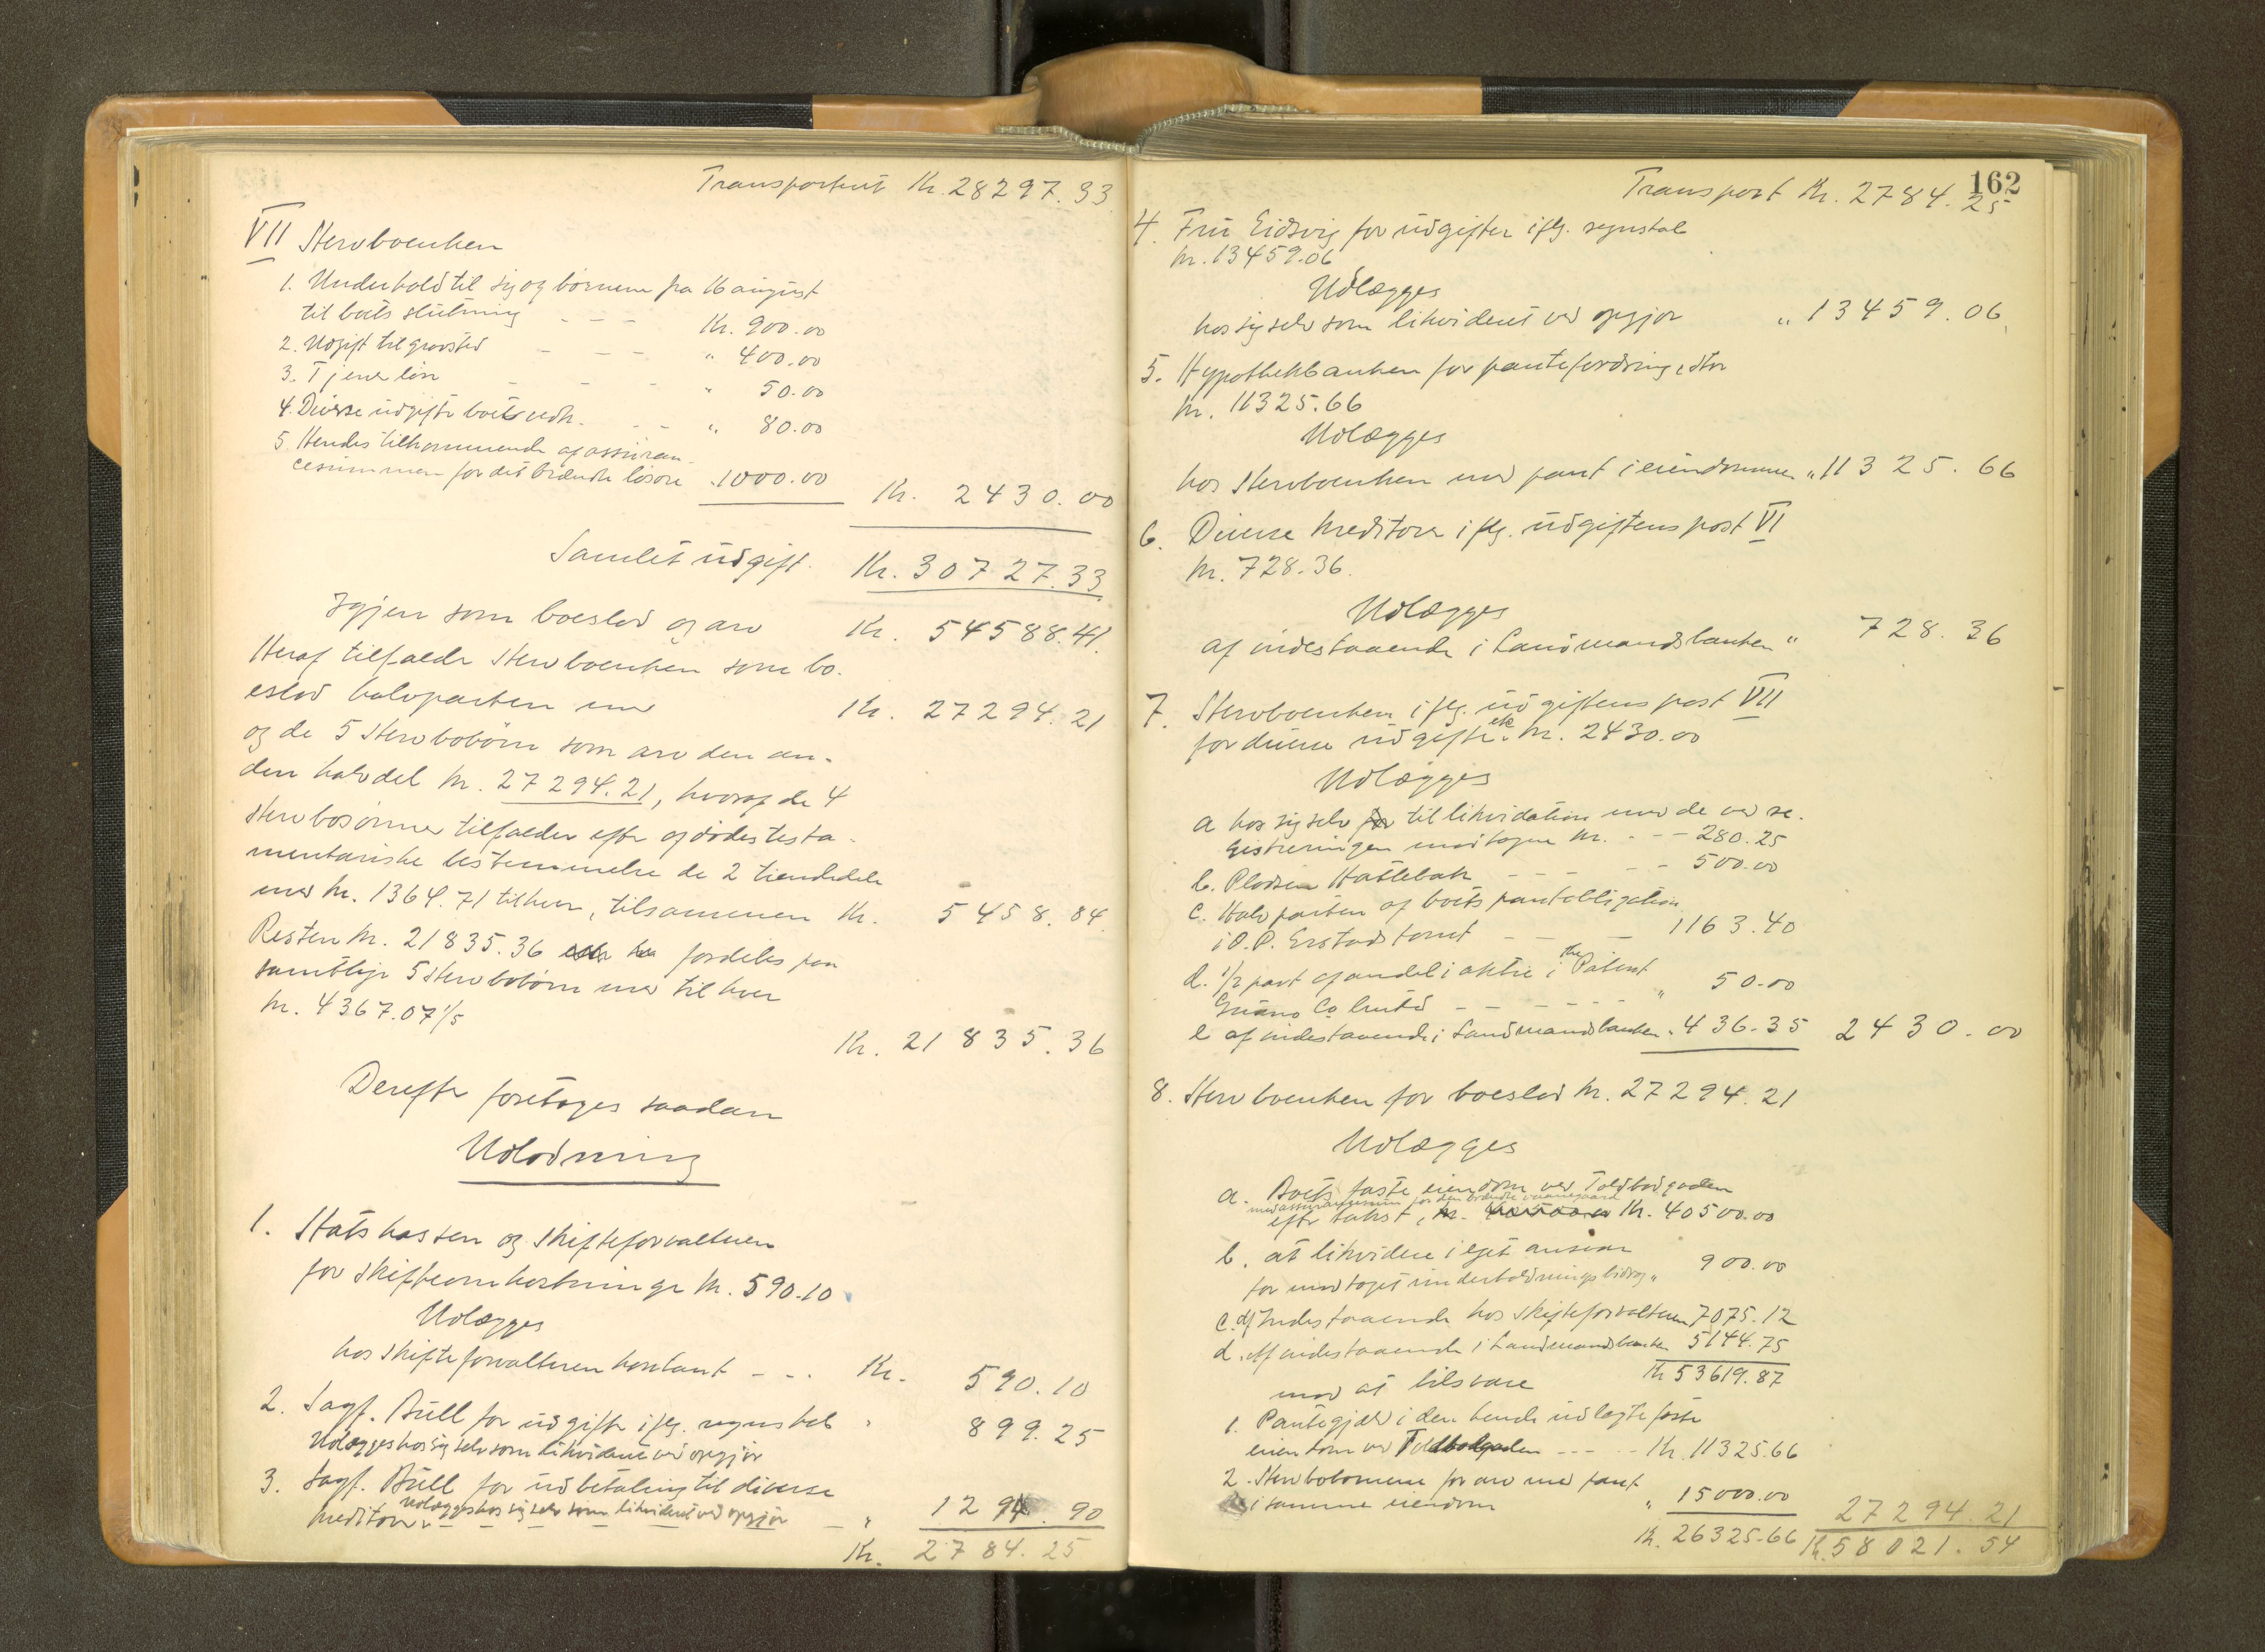 Transportert Kr. 28297.33
VII Stervboenken
1. Underhold til sig og börnene fra 16 august
til boets slutning - - - Kr. 900.00
2. Udgift til gravsted - - - " 400.00
3. Tjenerlön - - - " 50.00
4. Diverse udgifter boets vedk. - - " 80.00
5. Hendes tilkommende af assüran-
cesummen for det brændte lösöre " 1000.00 Kr. 2430.00
Samlet üdgift. Kr. 30727.33
Igjen som boeslod og arv Kr. 54588.41
Heraf tilfalder Stervboenken som bo-
eslod halvparten med Kr. 27294.21
og de 5 Stervbobörn som arv den an-
den halvdel Kr. 27294.21, hvoraf de 4
Stervbosönner tilfalder efter afdödes testa-
mentariske bestemmelse de 2 tiendedele
med Kr. 1364.71 til hver, tilsammen Kr. 5458.84
Resten Kr. 21835.36 fordeles paa
samtlige 5 Stervbobörn med til hver
Kr. 4367.07 1/5
Kr. 21835.36
Derefter foretoges saadan
Udlodning
1. Statskassen og Skifteforvalteren
for skifteomkostninger Kr. 590.10
Udlægges
hos skifteforvalteren kontant - - - Kr. 590.10
2. Sagf. Büll for üdgifter iflg. regnskab " 899.25
Udlægges hos sig selv som likvideret ved opgjör
3. Sagf. Büll for üdbetaling til diverse
kreditorer. Udlægges hos sig selv som likvideret ved opgjör - " 1294.90
Kr. 2784.25
162
Transport Kr. 2784.25
4. Frü Eidsvig for üdgifter iflg. regnskab
Kr. 13459.06
Udlægges
hos sig selv som likvideret ved opgjör " 13459.06
5. Hypothekbanken for pantefordring, stor
Kr. 11325.66
Udlægges
hos Stervboenken med pant i eiendommen " 11325.66
6. Diverse kreditorer iflg. üdgiftens post VI
Kr. 728.36
Udlægges
af indestaaende i Landmandsbanken " 728.36
7. Stervboenken iflg. üdgiftens post VII
for diverse üdgifter etc Kr. 2430.00
Udlægges
a hos sig selv til likvidation med de ved re-
gistreringen modtagne Kr. - - - 280.25
b. Pladsen Hatlebak - - - - 500.00
c. Halvparten af boets pantobligation
i O. P. Erstads tomt - - - 1163.40
d. 1/2 part af andel i aktie i the Patent
Guano Co limted - - - - - " 50.00
e af indestaaende i Landmandsbanken " 436.35 2430.00
8. Stervboenken for boeslod Kr. 27294.21
Udlægges
a. Boets faste eiendom ved Toldbodgaden
med assurancesum for den brændte vaaningsgaard
efter takst, Kr. 40500.00
b. at likvidere i eget ansvar
for modtaget underholdningsbidrag " 900.00
c. af Indestaaende hos Skifteforvalteren 7075.12
d. Af indestaaende i Landmandsbanken 5144.75
Kr 53619.87
mod at tilsvare
1. Pantegjæld i den hende udlagte faste
eiendom ved Toldbodgaden - - - Kr. 11325.66
2. Stervbobörnene for arv med pant
i samme eiendom " 15000.00
Kr. 26325.66 27294.21
Kr. 58021.54